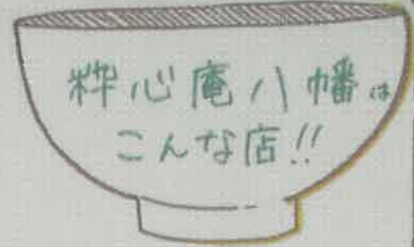 粋心庵八幡は
こんな店!!